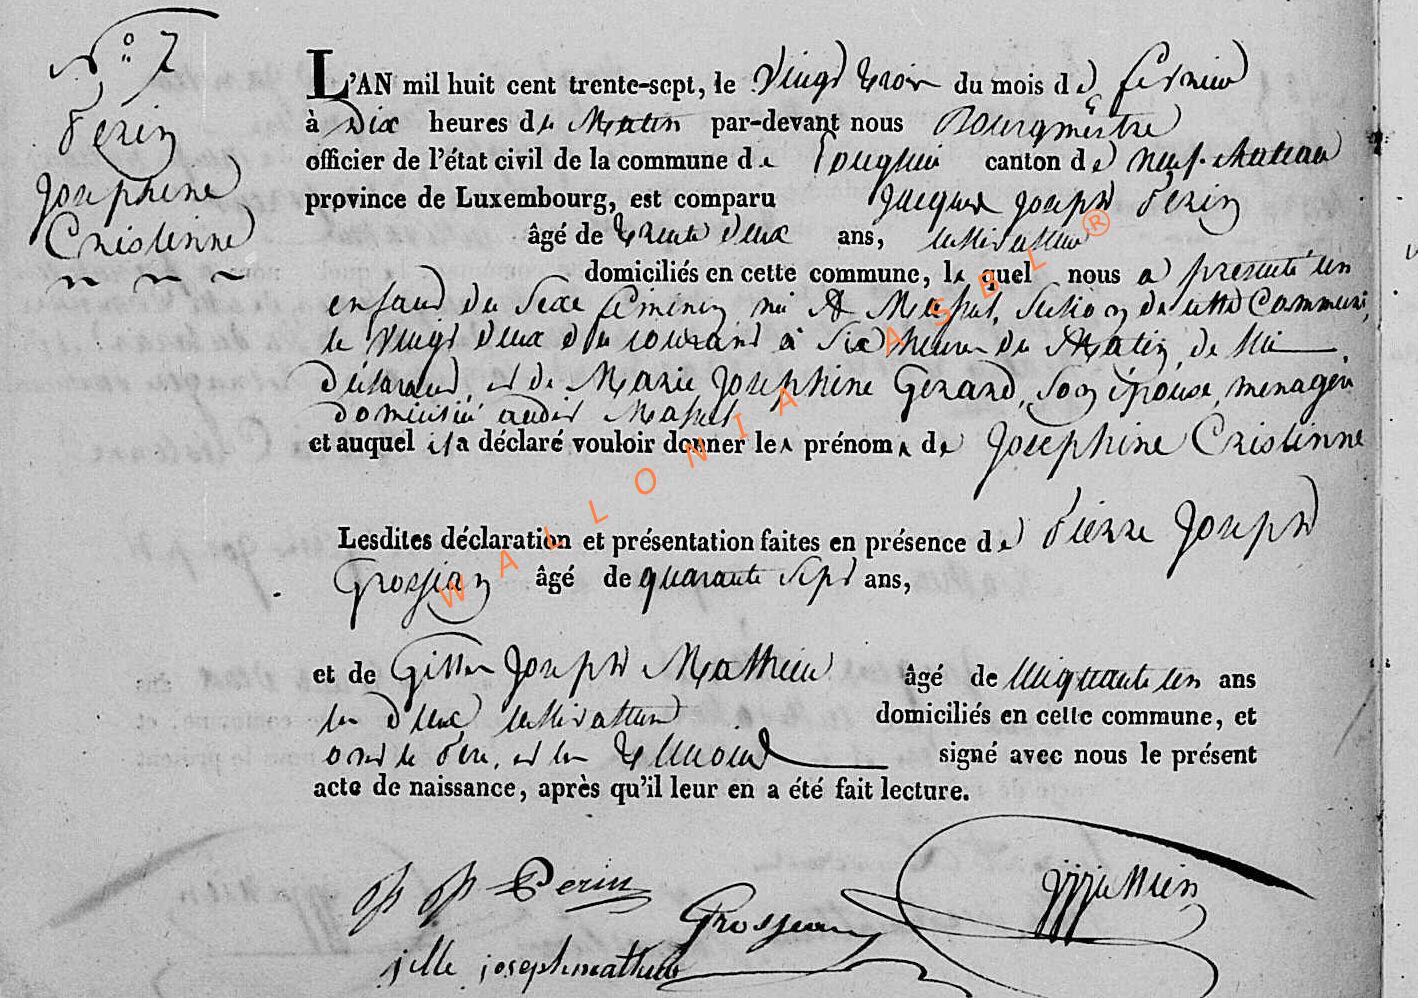 N° 7
Perin
Josephine
Cristinne
L'AN mil huit cent trente-sept, le Vingt trois du mois de fevrier
à Dix heures du Matin par-devant nous Bourgmestre
officier de l'état civil de la commune de canton de neufchateau
province de Luxembourg, est comparu Jacques Joseph Perin
âgé de trente deux ans, cultivateur
domiciliés en cette commune, le quel nous a présenté un
enfant du Sexe féminin né à Section de cette Commune,
le Vingt deux du courant à Six heures du Matin, de lui
déclarant, et de Marie Josephine Gerard, son épouse, menagere
domiciliée audit
et auquel il a déclaré vouloir donner les prénoms de Josephine Cristinne
Lesdites déclaration et présentation faites en présence de Pierre Joseph
Grosjean âgé de quarante sept ans,
et de Gille Joseph Mathieu âgé de cinquante un ans
les deux cultivateurs domiciliés en cette commune, et
ont le Pere, et les témoins signé avec nous le présent
acte de naissance, après qu'il leur en a été fait lecture.
Perin
Grosjean
jille joseph mathieu
WALLONIA ASBL ®